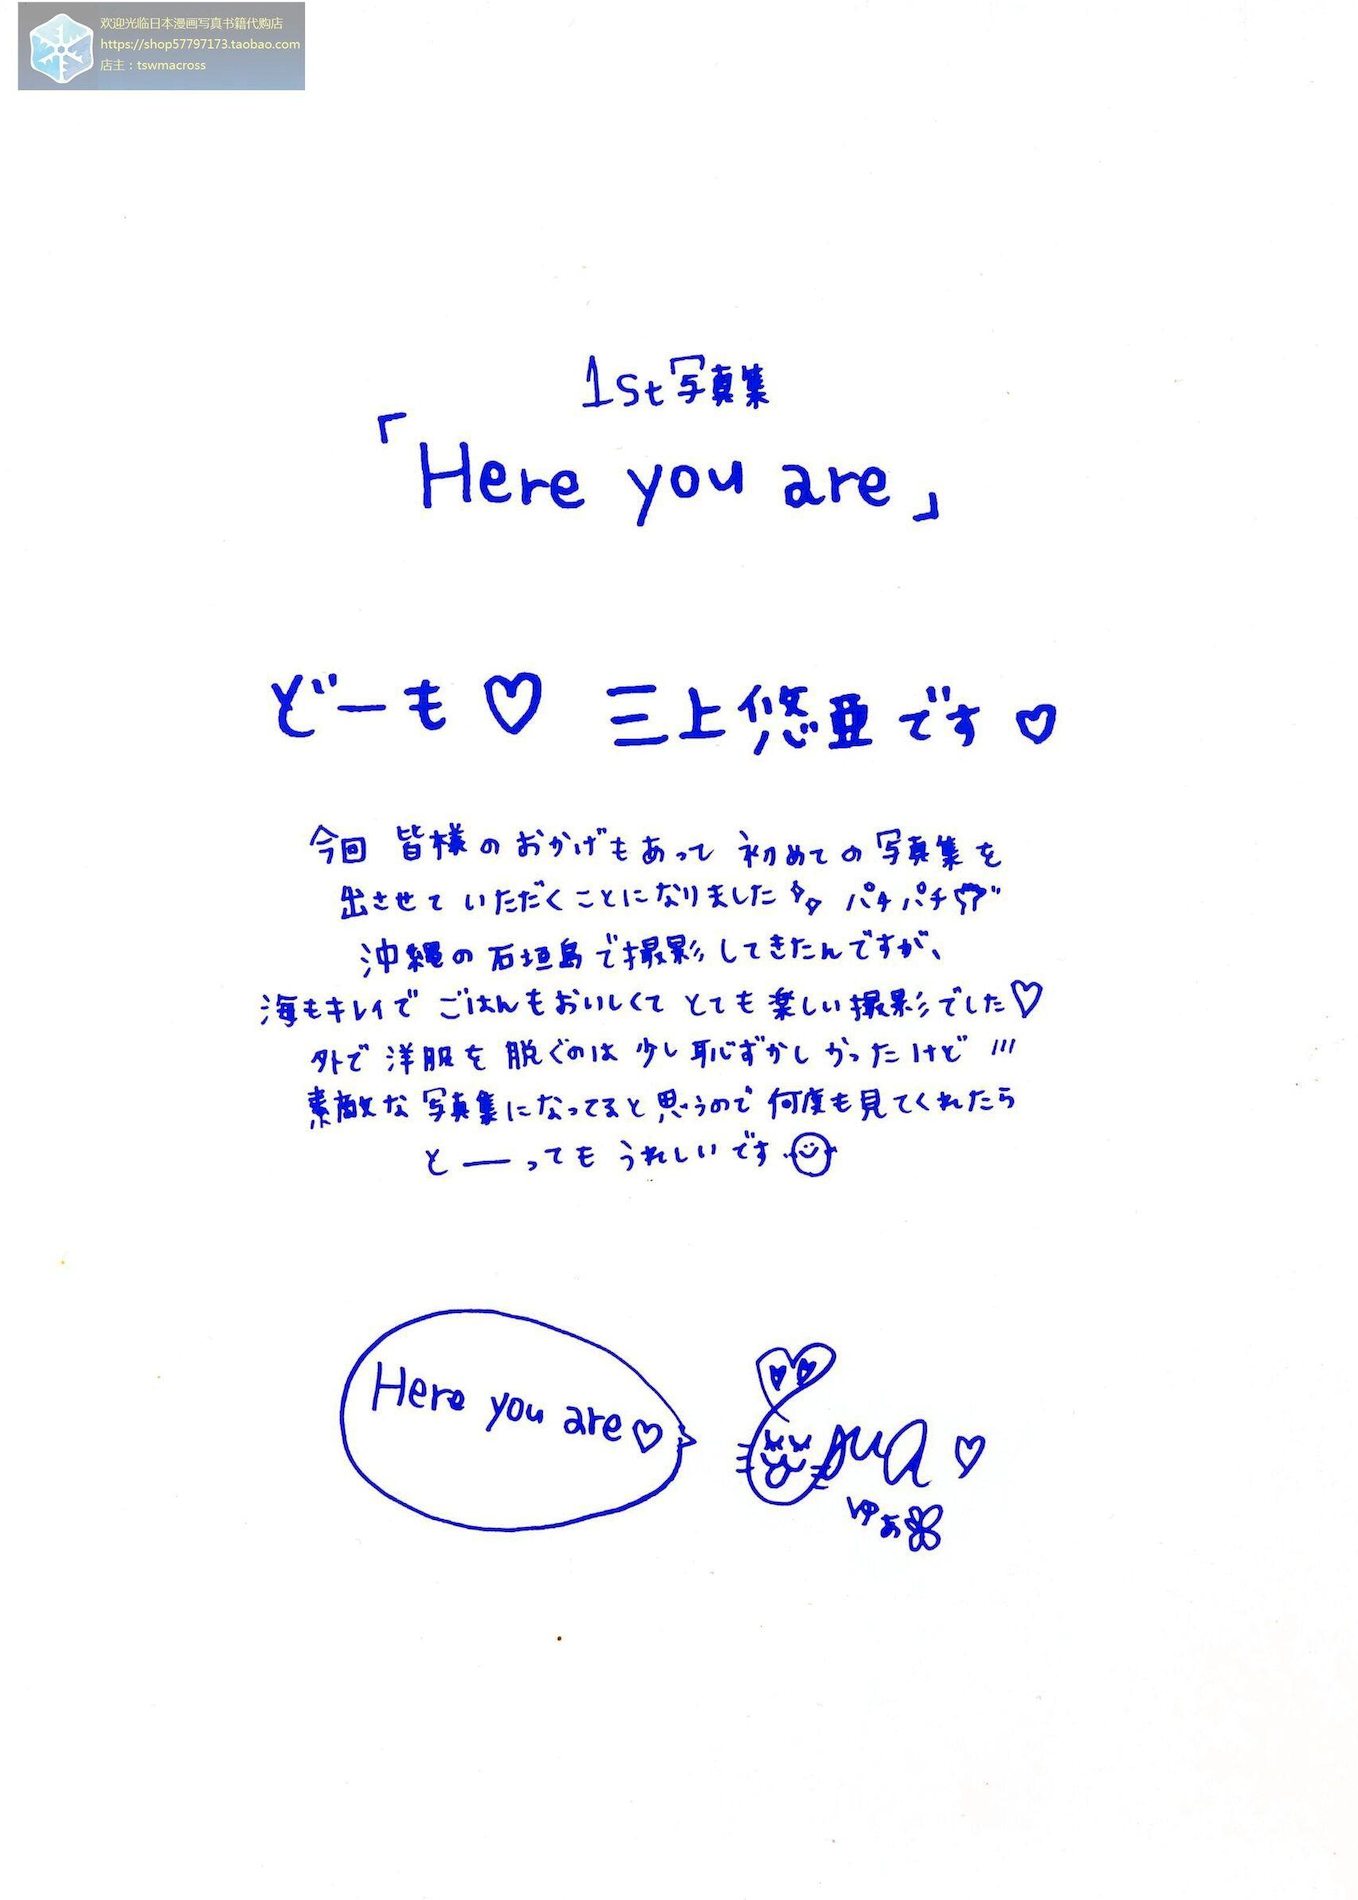 欢迎光临日本漫画写真书籍代购店
https://shop57797173.taobao.com
店主：tswmacross
1st写真集
「Here you are」
どーも♡ 三上悠亜です♡
今回 皆様のおかげもあって 初めての写真集を
出させていただくことになりました パチパチ
沖縄の石垣島で撮影してきたんですが、
海もキレイで ごはんもおいしくて とても楽しい撮影でした♡
外で洋服を脱ぐのは少し恥ずかしかったけど !!!
素敵な写真集になってると思うので何度も見てくれたら
とーってもうれしいです
Here you are♡
yua♡
ゆあ